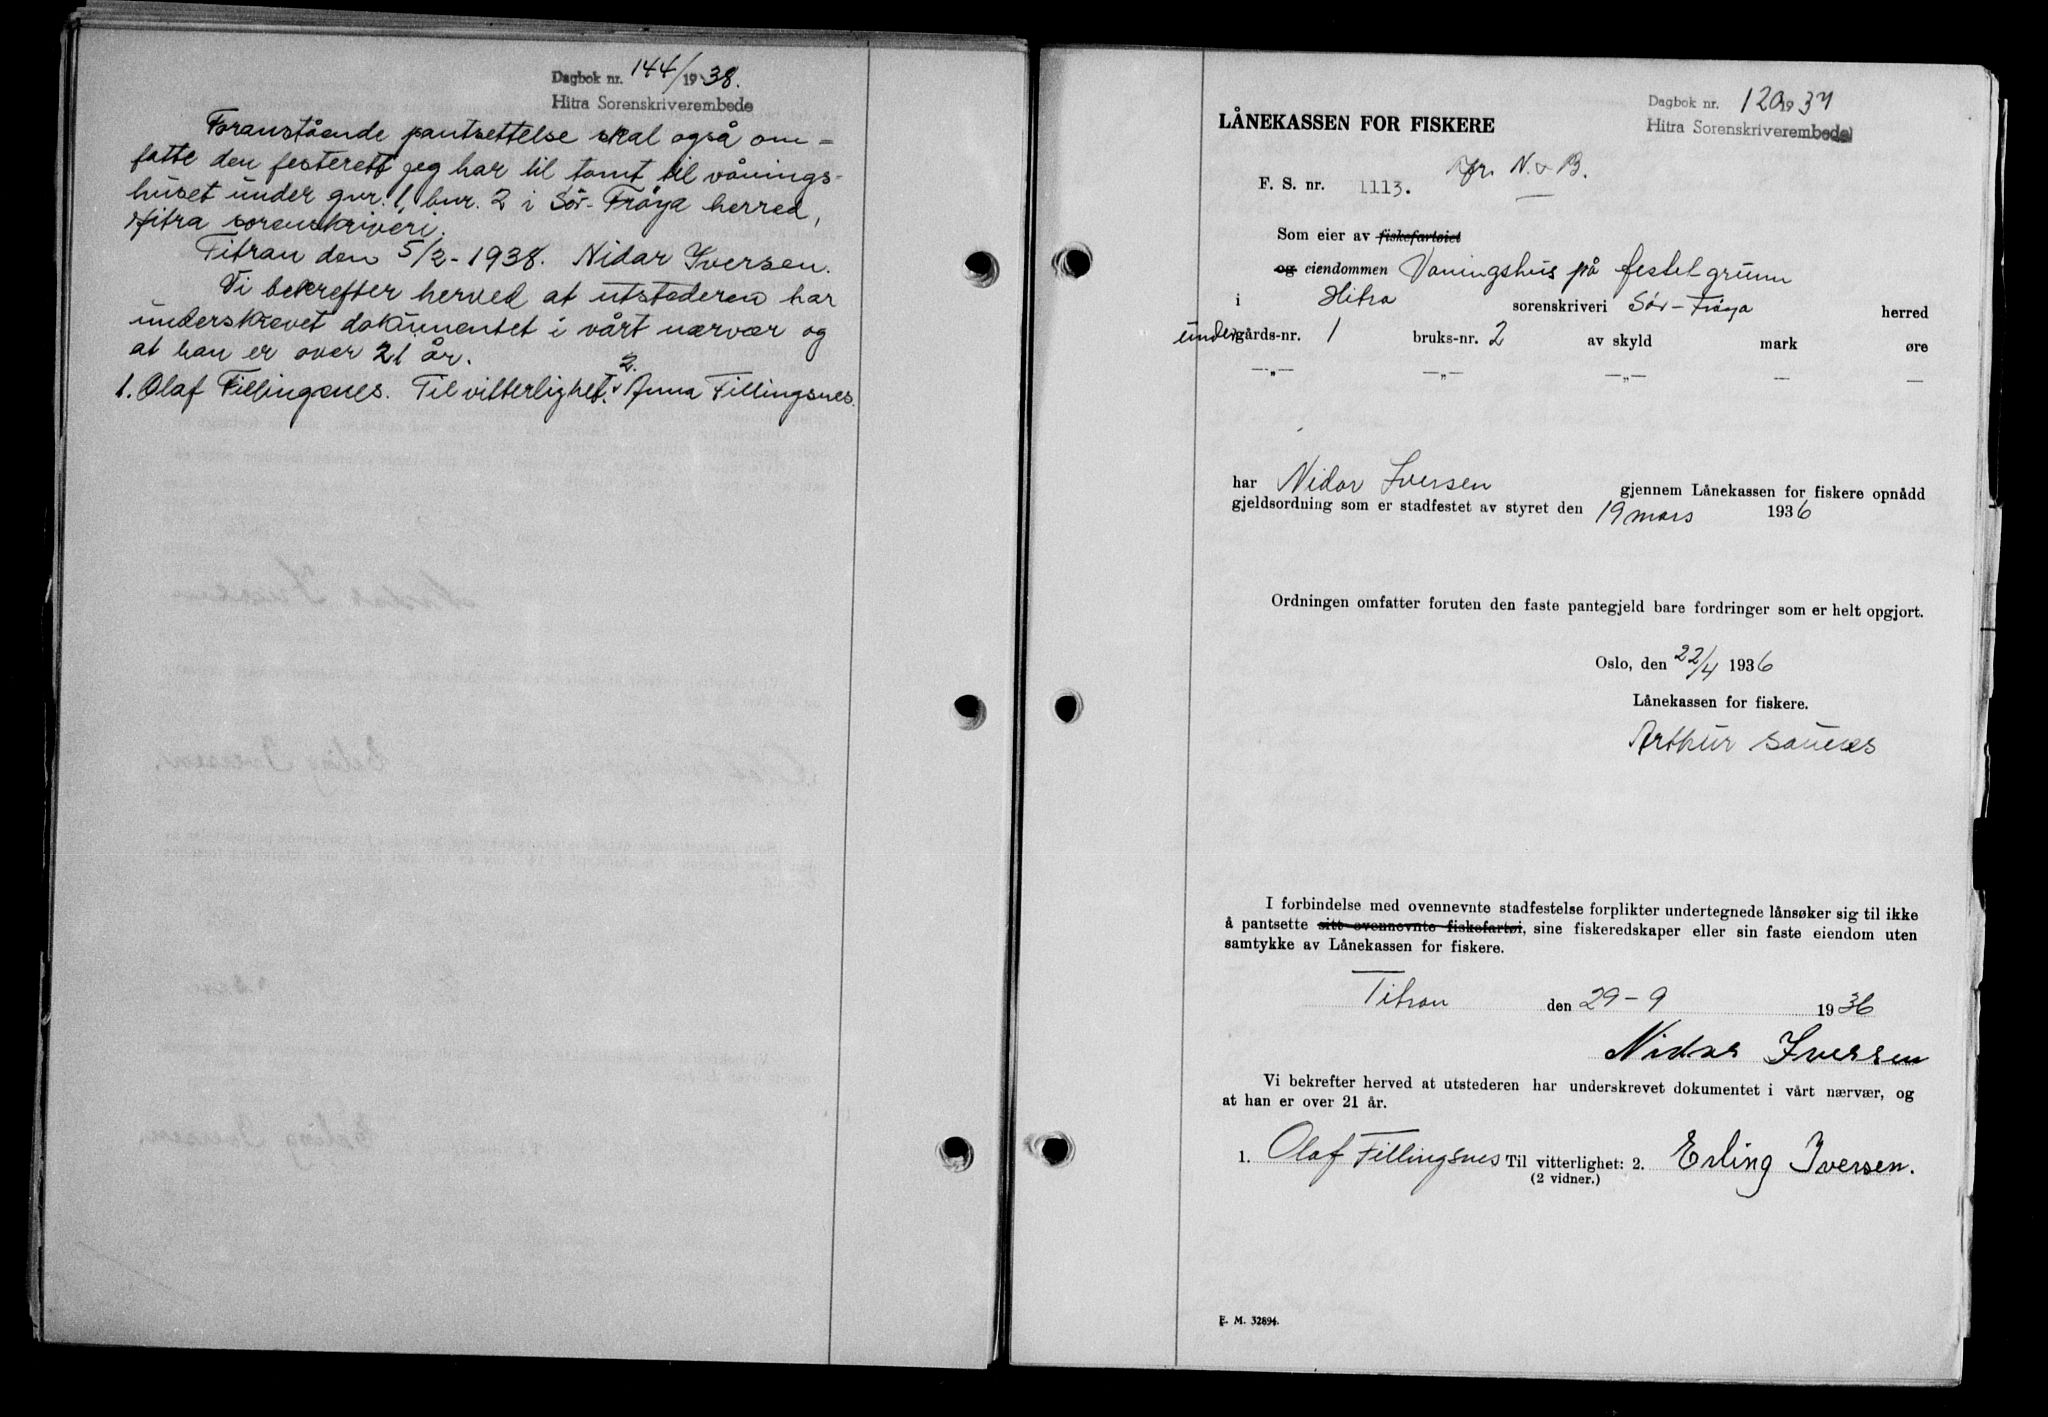 Dagbok nr. 144/1938.
Hitra Sorenskriverembede
Foranstående pantsettelse skal også om-
fatte den festerett jeg har til tomt til vånings-
huset under gnr. 1 bnr. 2 i Sør-Frøya herred,
Hitra sorenskriveri.
Titran den 5/2-1938. Nidar Iversen.
Vi bekrefter herved at utstederen har
underskrevet dokumentet i vårt nærvær og
at han er over 21 år.
1. Olaf Fillingsnes. Til vitterlighet. 2. Anna Fillingsnes.
Dagbok nr. 120 1937
Hitra Sorenskriverembede
LÅNEKASSEN FOR FISKERE
F. S. nr. 1113. N. & B.
Som eier av fiskefartøiet
og eiendommen Våningshus på festet grunn
i Hitra sorenskriveri Sør-Frøya herred
under gårds-nr. 1 bruks-nr. 2 av skyld mark øre
—„— —„— —„— — —
har Nidar Iversen gjennem Lånekassen for fiskere opnådd
gjeldsordning som er stadfestet av styret den 19 mars 1936
Ordningen omfatter foruten den faste pantegjeld bare fordringer som er helt opgjort.
Oslo, den 22/4 1936
Lånekassen for fiskere.
Arthur Saunes
I forbindelse med ovennevnte stadfestelse forplikter undertegnede lånsøker sig til ikke
å pantsette sitt ovennevnte fiskefartøi, sine fiskeredskaper eller sin faste eiendom uten
samtykke av Lånekassen for fiskere.
Titran den 29-9 1936
Nidar Iversen
Vi bekrefter herved at utstederen har underskrevet dokumentet i vårt nærvær, og
at han er over 21 år.
1. Olaf Fillingsnes Til vitterlighet: 2. Erling Iversen.
(2 vidner.)
E. M. 32894.